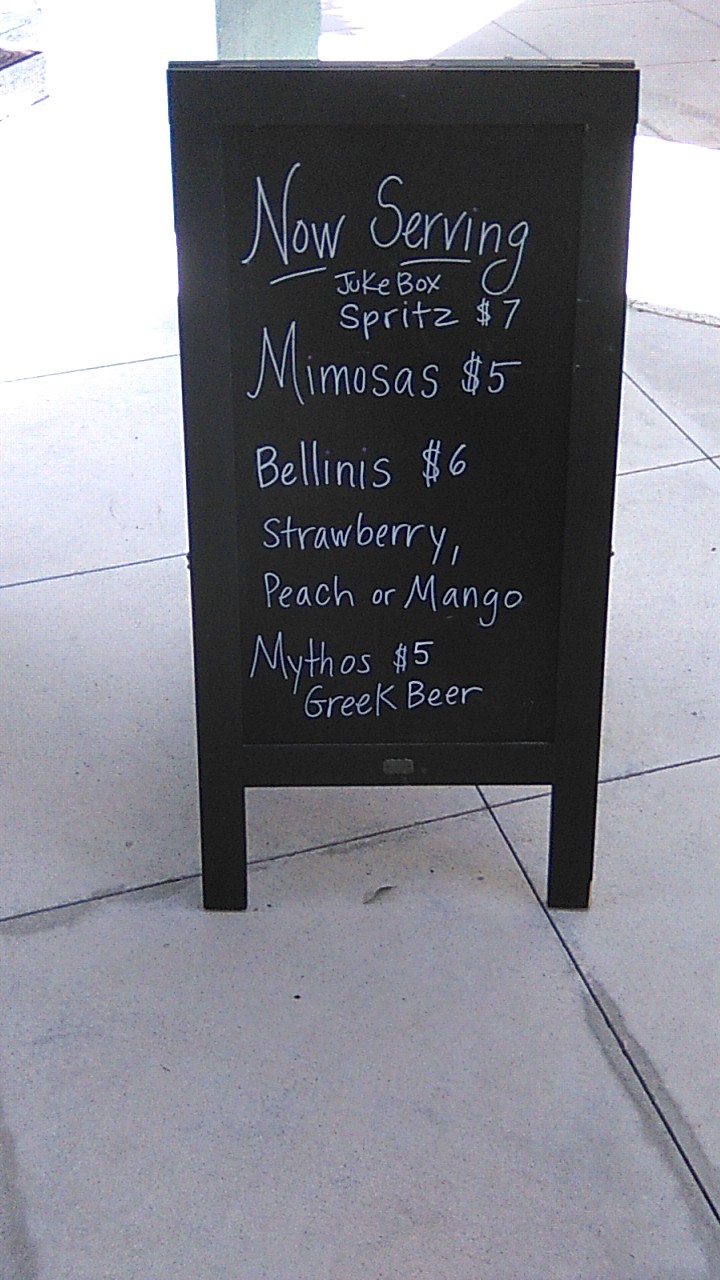 Now Serving
JukeBox
Spritz $7
Mimosas $5
Bellinis $6
Strawberry,
Peach or Mango
Mythos $5
Greek Beer